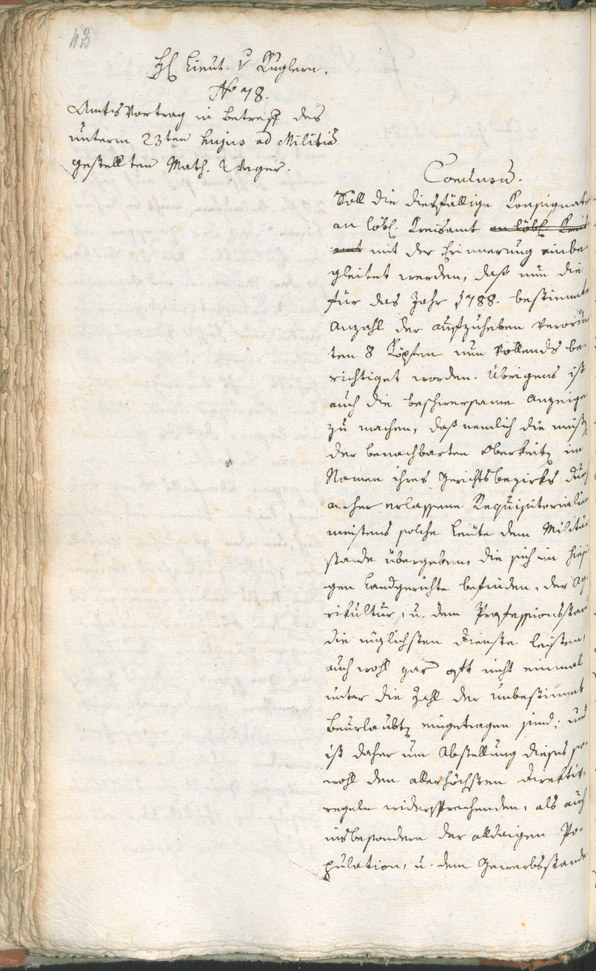 43
H. Lieut. v Kuglern.
No 78.
Amtsvortrag in Betreff des
unterm 23ten hujus ad Militiam
gestellten Math. Unger.
Conclusum.
Soll die diesfällige Konsignation
an löbl. Kreisamt an löbl. Kreis
amt mit der Erinnerung einbe-
gleitet werden, daß nun die
für das Jahr 1788. bestimmte
Anzahl der auszuheben verord
ten 8 Köpfen nun vollends be-
richtiget worden. Übrigens ist
auch die beschwersame Anzeige
zu machen, daß nemlich die meist
der benachbarten Oberkeitn im
Namen ihres Gerichtsbezirks durch
anher erlassene Requisitorialien
meistens solche Leute dem Militär
stande übergeben, die sich im hiesi
gen Landgerichte befinden, der Ag
rikultur, u. dem Professionsstan
die nüzlichsten Dienste leisten
auch wohl gar oft nicht einmal
unter die Zahl der unbestimmt
Beurlaubtn eingetragen sind; und
ist daher um Abstellung dieses so-
wohl den allerhöchsten Direktiv-
regeln widersprechenden, als auch
insbesondere der alldaigen Po-
pulation, u. dem Gewerbsstande